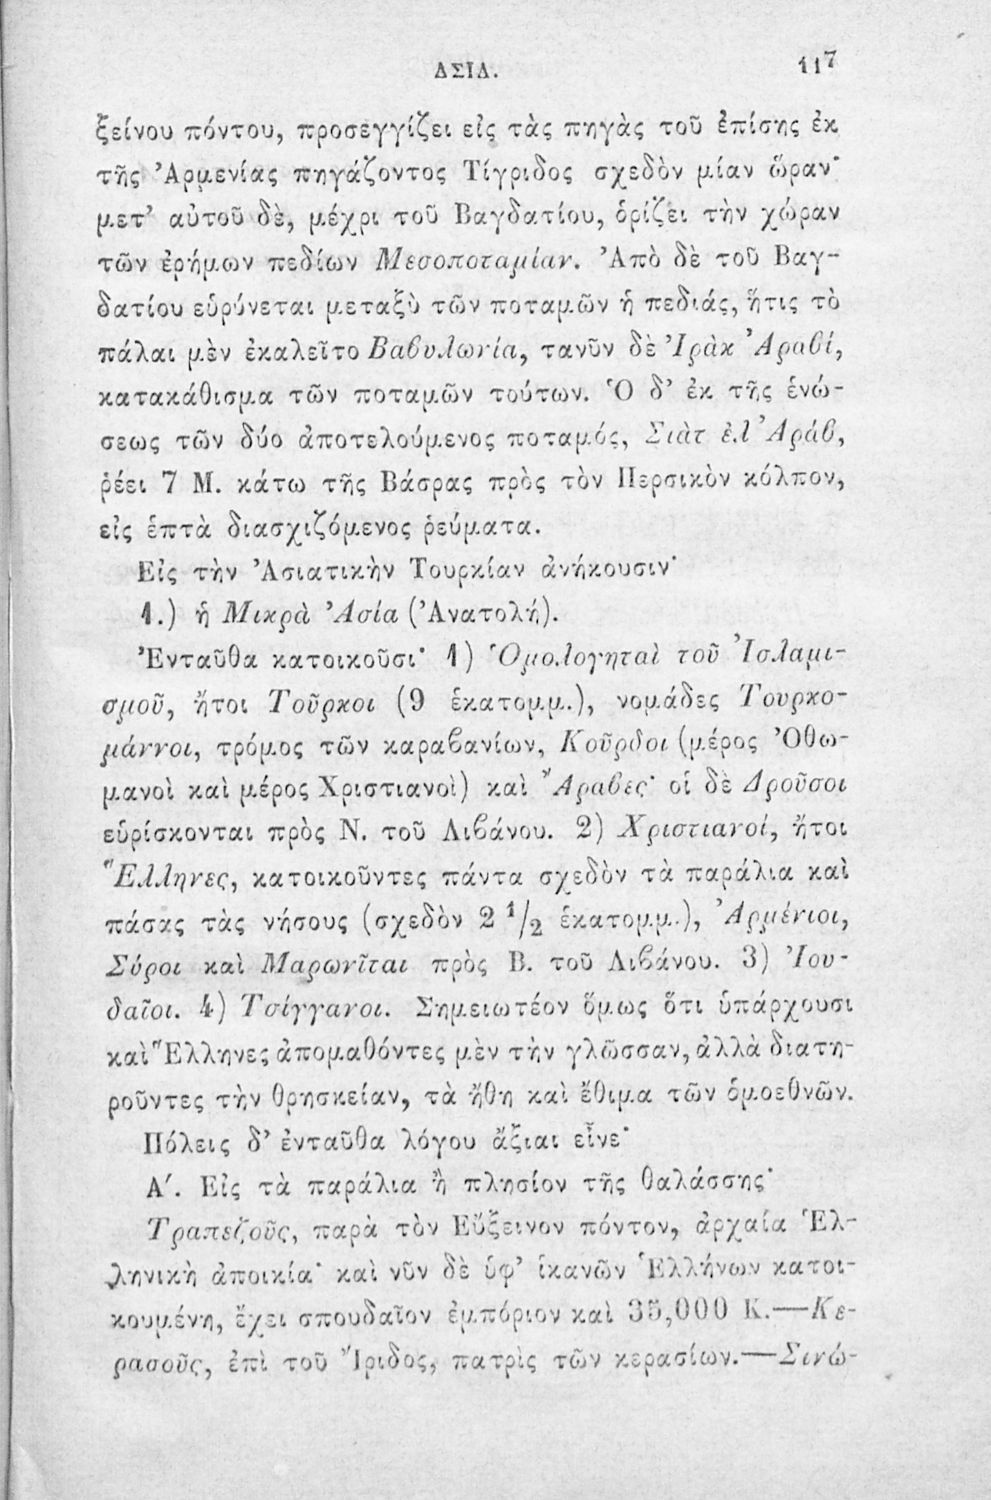 ΑΣΙΑ. 117
ξείνου πόντου, προσεγγίζει εἰς τὰς πηγὰς τοῦ ἐπίσης ἐκ
τῆς Ἀρμενίας πηγάζοντος Τίγριδος σχεδὸν μίαν ὥραν·
μετ’ αὐτοῦ δὲ, μέχρι τοῦ Βαγδατίου, ὁρίζει τὴν χώραν
τῶν ἐρήμων πεδίων Μεσοποταμίαν. Ἀπὸ δὲ τοῦ Βαγ-
δατίου εὐρύνεται μεταξὺ τῶν ποταμῶν ἡ πεδιάς, ἥτις τὸ
πάλαι μὲν ἐκαλεῖτο Βαβυλωνία, τανῦν δὲ Ἰρὰκ Ἀραβί,
κατακάθισμα τῶν ποταμῶν τούτων. Ὁ δ’ ἐκ τῆς ἑνώ-
σεως τῶν δύο ἀποτελούμενος ποταμός, Σιὰτ ἐλ Ἀράβ,
ῥέει 7 Μ. κάτω τῆς Βάσρας πρὸς τὸν Περσικὸν κόλπον,
εἰς ἑπτὰ διασχιζόμενος ῥεύματα.
Εἰς τὴν Ἀσιατικὴν Τουρκίαν ἀνήκουσιν·
1.) ἡ Μικρὰ Ἀσία (Ἀνατολή).
Ἐνταῦθα κατοικοῦσι· 1) Ὁμολογηταὶ τοῦ Ἰσλαμι-
σμοῦ, ἤτοι Τοῦρκοι (9 ἑκατομμ.), νομάδες Τουρκο-
μάννοι, τρόμος τῶν καραβανίων, Κοῦρδοι (μέρος Ὀθω-
μανοὶ καὶ μέρος Χριστιανοὶ) καὶ Ἄραβες· οἱ δὲ Δροῦσοι
εὑρίσκονται πρὸς Ν. τοῦ Λιβάνου. 2) Χριστιανοί, ἤτοι
Ἕλληνες, κατοικοῦντες πάντα σχεδὸν τὰ παράλια καὶ
πάσας τὰς νήσους (σχεδὸν 2 1/2 ἑκατομμ.), Ἀρμένιοι,
Σύροι καὶ Μαρωνῖται πρὸς Β. τοῦ Λιβάνου. 3) Ἰου-
δαῖοι. 4) Τσίγγανοι. Σημειωτέον ὅμως ὅτι ὑπάρχουσι
καὶ Ἕλληνες ἀπομαθόντες μὲν τὴν γλῶσσαν, ἀλλὰ διατη-
ροῦντες τὴν θρησκείαν, τὰ ἤθη καὶ ἔθιμα τῶν ὁμοεθνῶν.
Πόλεις δ’ ἐνταῦθα λόγου ἄξιαι εἶνε·
Α΄. Εἰς τὰ παράλια ἢ πλησίον τῆς θαλάσσης·
Τραπεζοῦς, παρὰ τὸν Εὔξεινον πόντον, ἀρχαία Ἑλ-
ληνικὴ ἀποικία· καὶ νῦν δὲ ὑφ’ ἱκανῶν Ἑλλήνων κατοι-
κουμένη, ἔχει σπουδαῖον ἐμπόριον καὶ 35,000 Κ.—Κε-
ρασοῦς, ἐπὶ τοῦ Ἴριδος, πατρὶς τῶν κερασίων.—Σινώ-